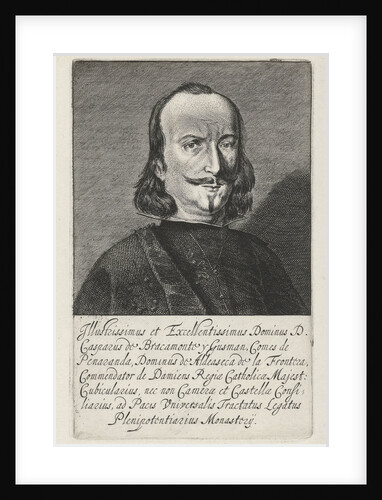 Illustrissimus et Excellentissimus Dominus D.
Casparus de Bracamonte y Gusman, Comes de
Penaranda, Dominus de Aldeaseca de la Frontera,
Commendator de Damiens Regiæ Catholicæ Majest:
Cubicularius, nec non Cameræ et Castellæ Consi-
liarius, ad Pacis Vniversalis Tractatus Legatus
Plenipotentiarius Monasterÿ.